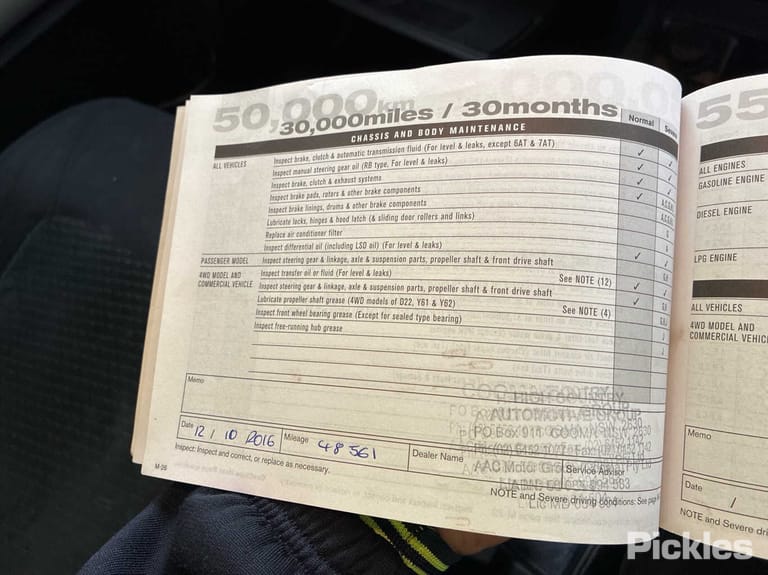 50,000km
30,000miles / 30months
CHASSIS AND BODY MAINTENANCE
Normal
ALL VEHICLES
Inspect brake, clutch & automatic transmission fluid (For level & leaks, except 6AT & 7AT) ✓
Inspect manual steering gear oil (RB type. For level & leaks) ✓
Inspect brake, clutch & exhaust systems ✓
Inspect brake pads, rotors & other brake components ✓
Inspect brake linings, drums & other brake components
Lubricate locks, hinges & hood latch (& sliding door rollers and links)
Replace air conditioner filter
Inspect differential oil (including LSD oil) (For level & leaks) ✓
PASSENGER MODEL
Inspect steering gear & linkage, axle & suspension parts, propeller shaft & front drive shaft
4WD MODEL AND COMMERCIAL VEHICLE
Inspect transfer oil or fluid (For level & leaks) See NOTE (12) ✓
Inspect steering gear & linkage, axle & suspension parts, propeller shaft & front drive shaft ✓
Lubricate propeller shaft grease (4WD models of D22, Y61 & Y62)
Inspect front wheel bearing grease (Except for sealed type bearing) See NOTE (4)
Inspect free-running hub grease
Memo
Date 12 / 10 2016 Mileage 48 561 Dealer Name
AUTOMOTIVE GROUP
PO Box 911
AAC Motor Group
Service Advisor
Inspect: Inspect and correct, or replace as necessary.
NOTE and Severe driving conditions: See page
M-26
55
ALL ENGINES
GASOLINE ENGINE
DIESEL ENGINE
LPG ENGINE
ALL VEHICLES
4WD MODEL AND
Memo
Date /
NOTE and Severe
Pickles